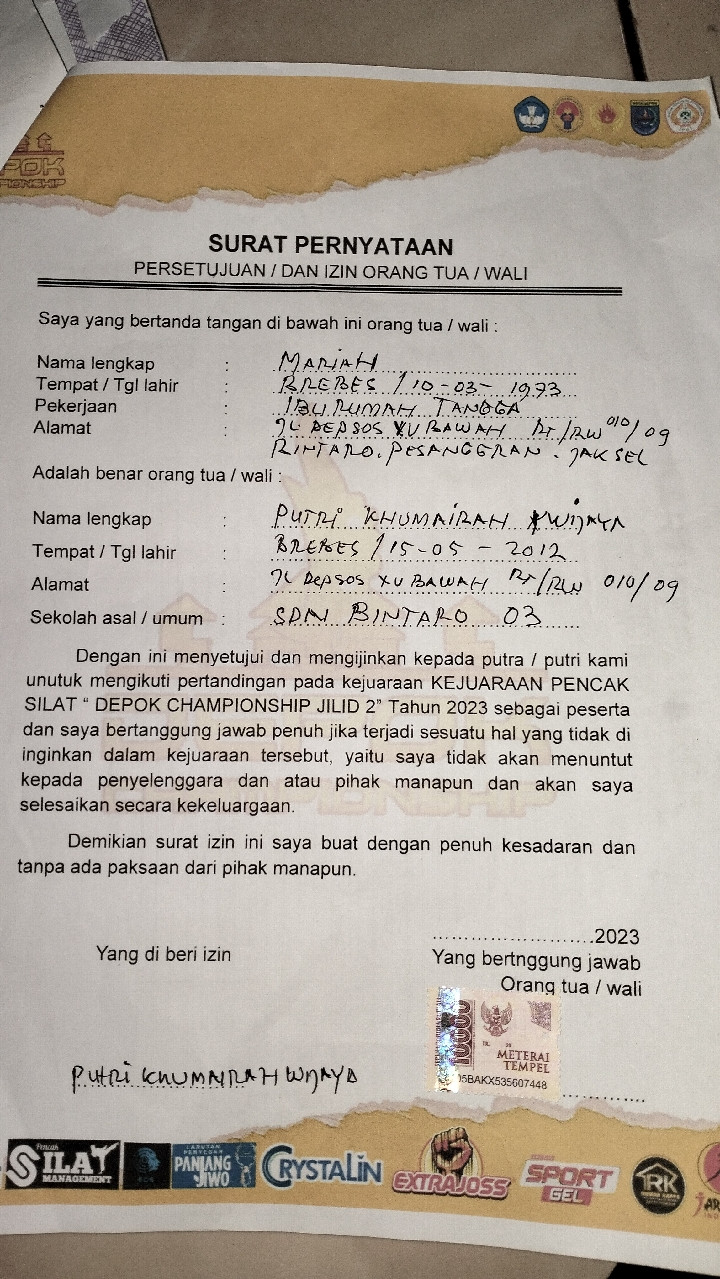 POK
PIONSHIP
SURAT PERNYATAAN
PERSETUJUAN / DAN IZIN ORANG TUA / WALI
Saya yang bertanda tangan di bawah ini orang tua / wali :
Nama lengkap : MARIAH
Tempat / Tgl lahir : BREBES / 10-03-1973
Pekerjaan : IBU RUMAH TANGGA
Alamat : JL DEPSOS XV BAWAH RT/RW 010/09
BINTARO. PESANGGRAN. JAKSEL
Adalah benar orang tua / wali :
Nama lengkap : PUTRI KHUMAIRAH WIJAYA
Tempat / Tgl lahir : BREBES / 15-05-2012
Alamat : JL DEPSOS XV BAWAH RT/RW 010/09
Sekolah asal / umum : SDN BINTARO 03
Dengan ini menyetujui dan mengijinkan kepada putra / putri kami
unutuk mengikuti pertandingan pada kejuaraan KEJUARAAN PENCAK
SILAT “ DEPOK CHAMPIONSHIP JILID 2” Tahun 2023 sebagai peserta
dan saya bertanggung jawab penuh jika terjadi sesuatu hal yang tidak di
inginkan dalam kejuaraan tersebut, yaitu saya tidak akan menuntut
kepada penyelenggara dan atau pihak manapun dan akan saya
selesaikan secara kekeluargaan.
Demikian surat izin ini saya buat dengan penuh kesadaran dan
tanpa ada paksaan dari pihak manapun.
..........................2023
Yang di beri izin
Yang bertnggung jawab
Orang tua / wali
10000
METERAI
TEMPEL
05BAKX535607448
PUTRI KHUMAIRAH WIJAYA
Pencak
SILAT
MANAGEMENT
LARUTAN PENYEGAR
PANJANG
JIWO
CRYSTALIN
EXTRAJOSS
SPORT
GEL
RK